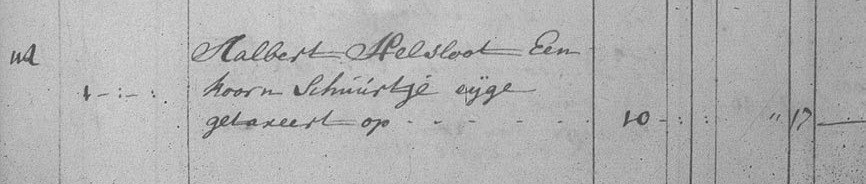 Aalbert Helsloot Een
1 - : - : koorn Schuurtje eyge
getaxeert op - - - - - - 10 - : : " 17 —